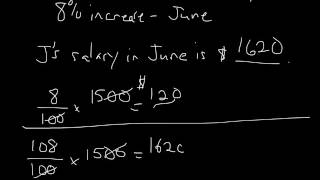 8% increase - June
J's salary in June is $ 1620
8/100 × 1500 = $120
108/100 × 1500 = 1620